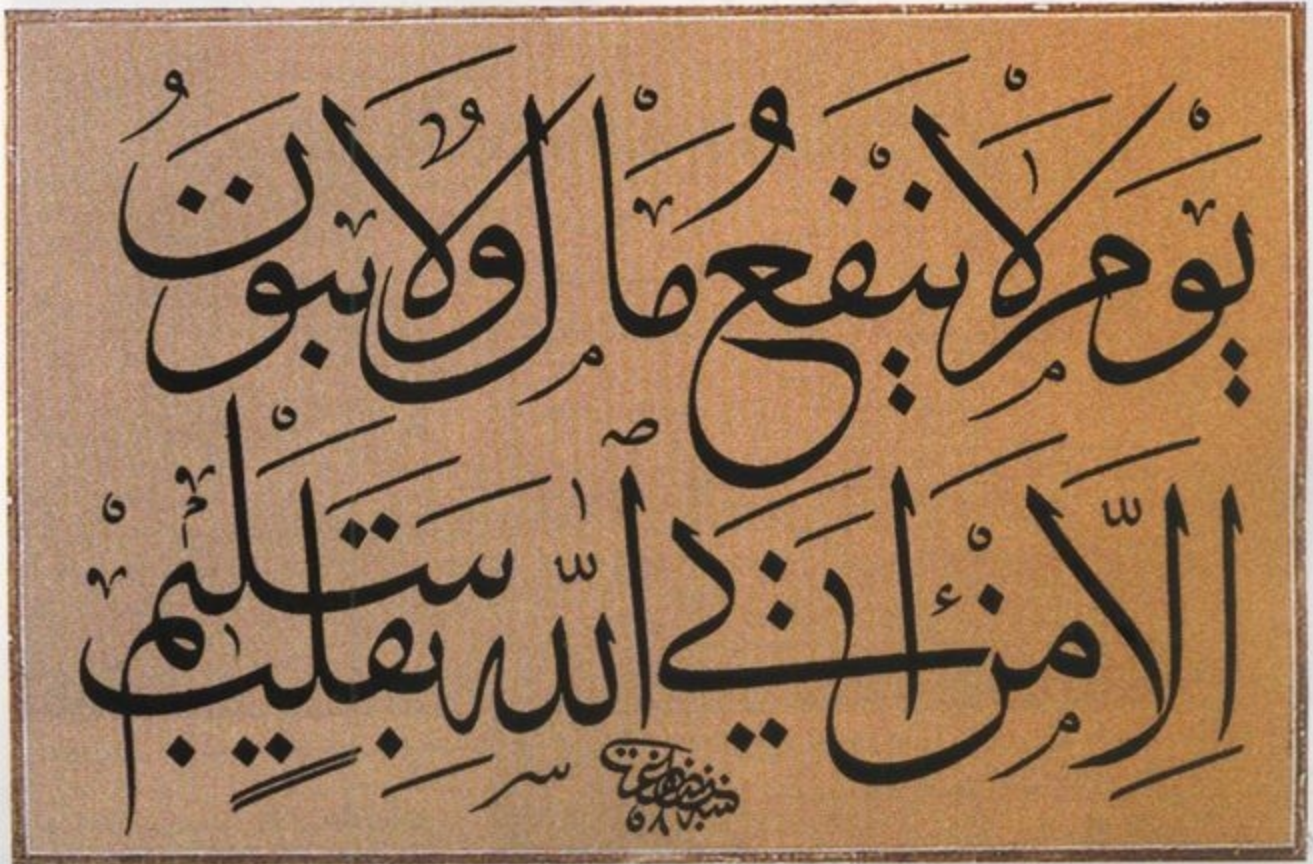 يَوْمَ لَا يَنْفَعُ مَالٌ وَلَا بَنُونَ
اِلَّا مَنْ اَتَى ٱللّٰهَ بِقَلْبٍ سَلِيمٍ